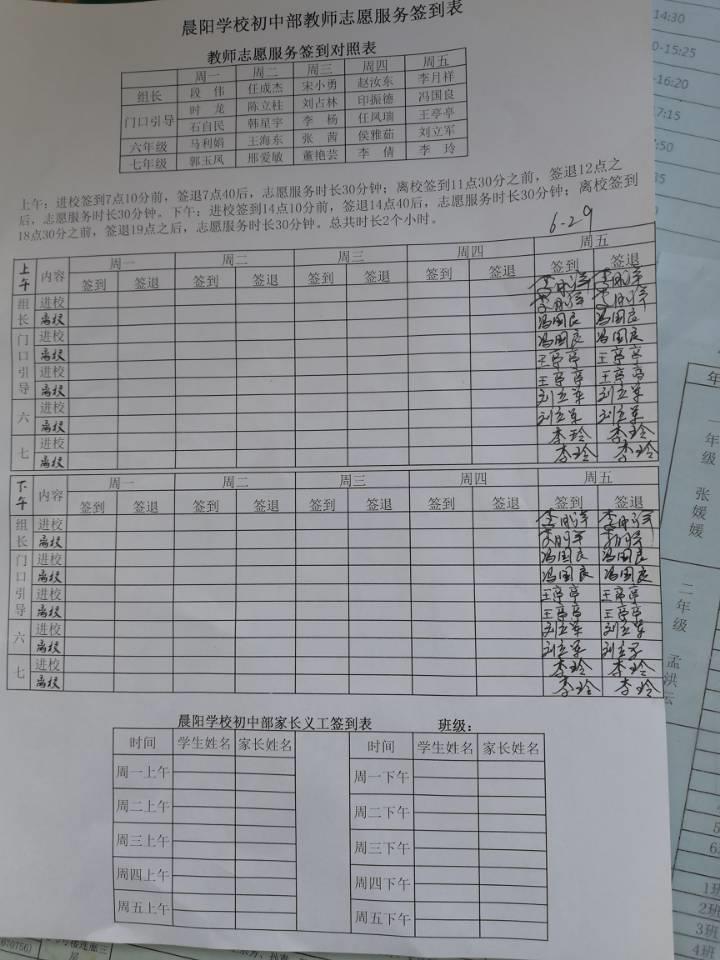 晨阳学校初中部教师志愿服务签到表
教师志愿服务签到对照表
周一 周二 周三 周四 周五
组长 段 伟 任成杰 宋小勇 赵汝东 李月祥
门口引导 时 龙 陈立柱 刘占林 印振德 冯国良
石自民 韩星宇 李 杨 任凤瑞 王亭亭
六年级 马利娟 王海东 张 茜 侯雅茹 刘立军
七年级 郭玉凤 邢爱敏 董艳芸 李 倩 李 玲
上午:进校签到7点10分前,签退7点40后,志愿服务时长30分钟;离校签到11点30分之前,签退12点之
后,志愿服务时长30分钟。下午:进校签到14点10分前,签退14点40后,志愿服务时长30分钟;离校签到
18点30分之前,签退19点之后,志愿服务时长30分钟。总共时长2个小时。
6-29
上午 内容 周一 周二 周三 周四 周五
签到 签退 签到 签退 签到 签退 签到 签退 签到 签退
组长 进校 李月祥 李月祥
离校 李月祥 李月祥
门口引导 进校 冯国良 冯国良
离校 冯国良 冯国良
进校 王亭亭 王亭亭
离校 王亭亭 王亭亭
六 进校 刘立军 刘立军
离校 刘立军 刘立军
七 进校 李玲 李玲
离校 李玲 李玲
下午 内容 周一 周二 周三 周四 周五
签到 签退 签到 签退 签到 签退 签到 签退 签到 签退
组长 进校 李月祥 李月祥
离校 李月祥 李月祥
门口引导 进校 冯国良 冯国良
离校 冯国良 冯国良
进校 王亭亭 王亭亭
离校 王亭亭 王亭亭
六 进校 刘立军 刘立军
离校 刘立军 刘立军
七 进校 李玲 李玲
离校 李玲 李玲
晨阳学校初中部家长义工签到表 班级:
时间 学生姓名 家长姓名 时间 学生姓名 家长姓名
周一上午 周一下午
周二上午 周二下午
周三上午 周三下午
周四上午 周四下午
周五上午 周五下午
14:30
0-15:25
-16:20
7:15
:50
:35
年
一年级 张媛媛
二年级 孟洪云
1班
2班
3班
4班